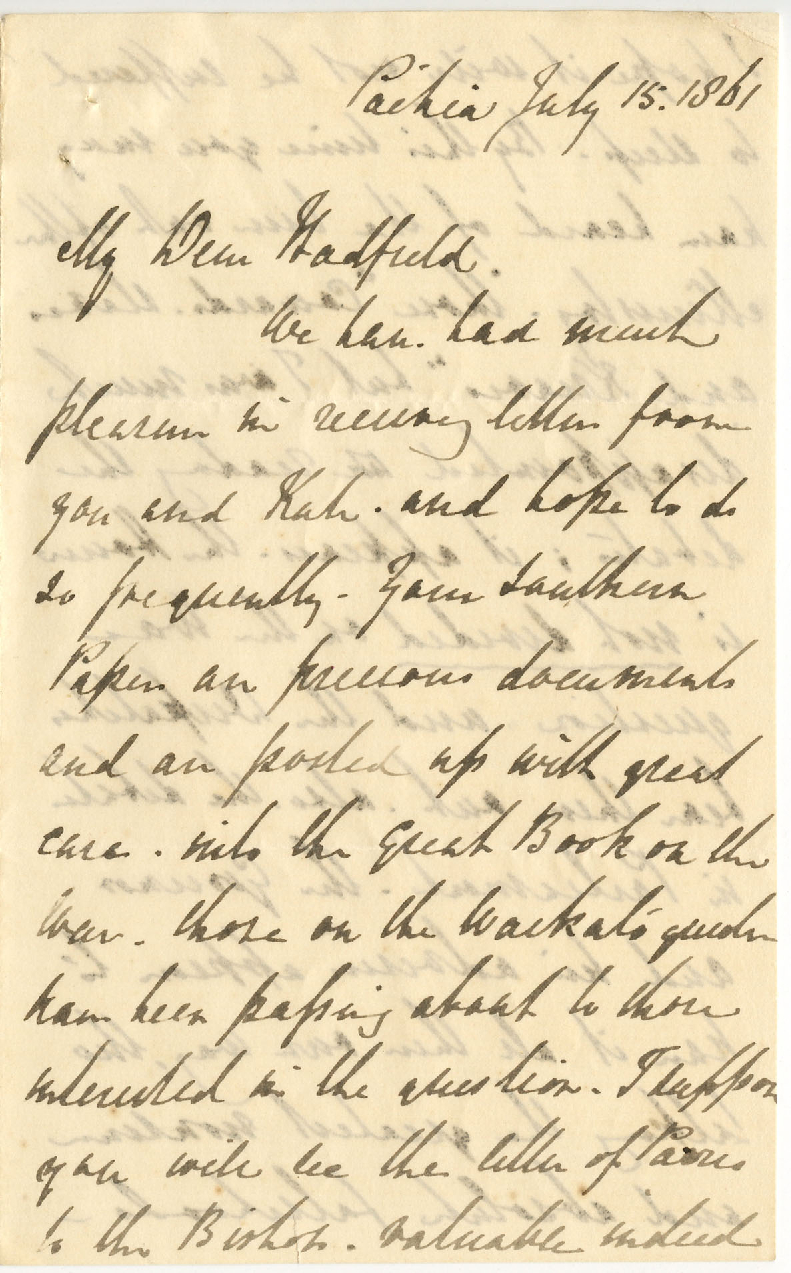 Paihia July 15. 1861
My Dear Hadfield.
We have had much
pleasure in receiving letters from
you and Kate. and hope to do
so frequently - Your Southern
Papers are precious documents
and are posted up with great
care. into the great Book on the
War. those on the Waikato question
have been passing about to those
interested in the question. I suppose
you will see the letter of Parris
to the Bishop. valuable indeed